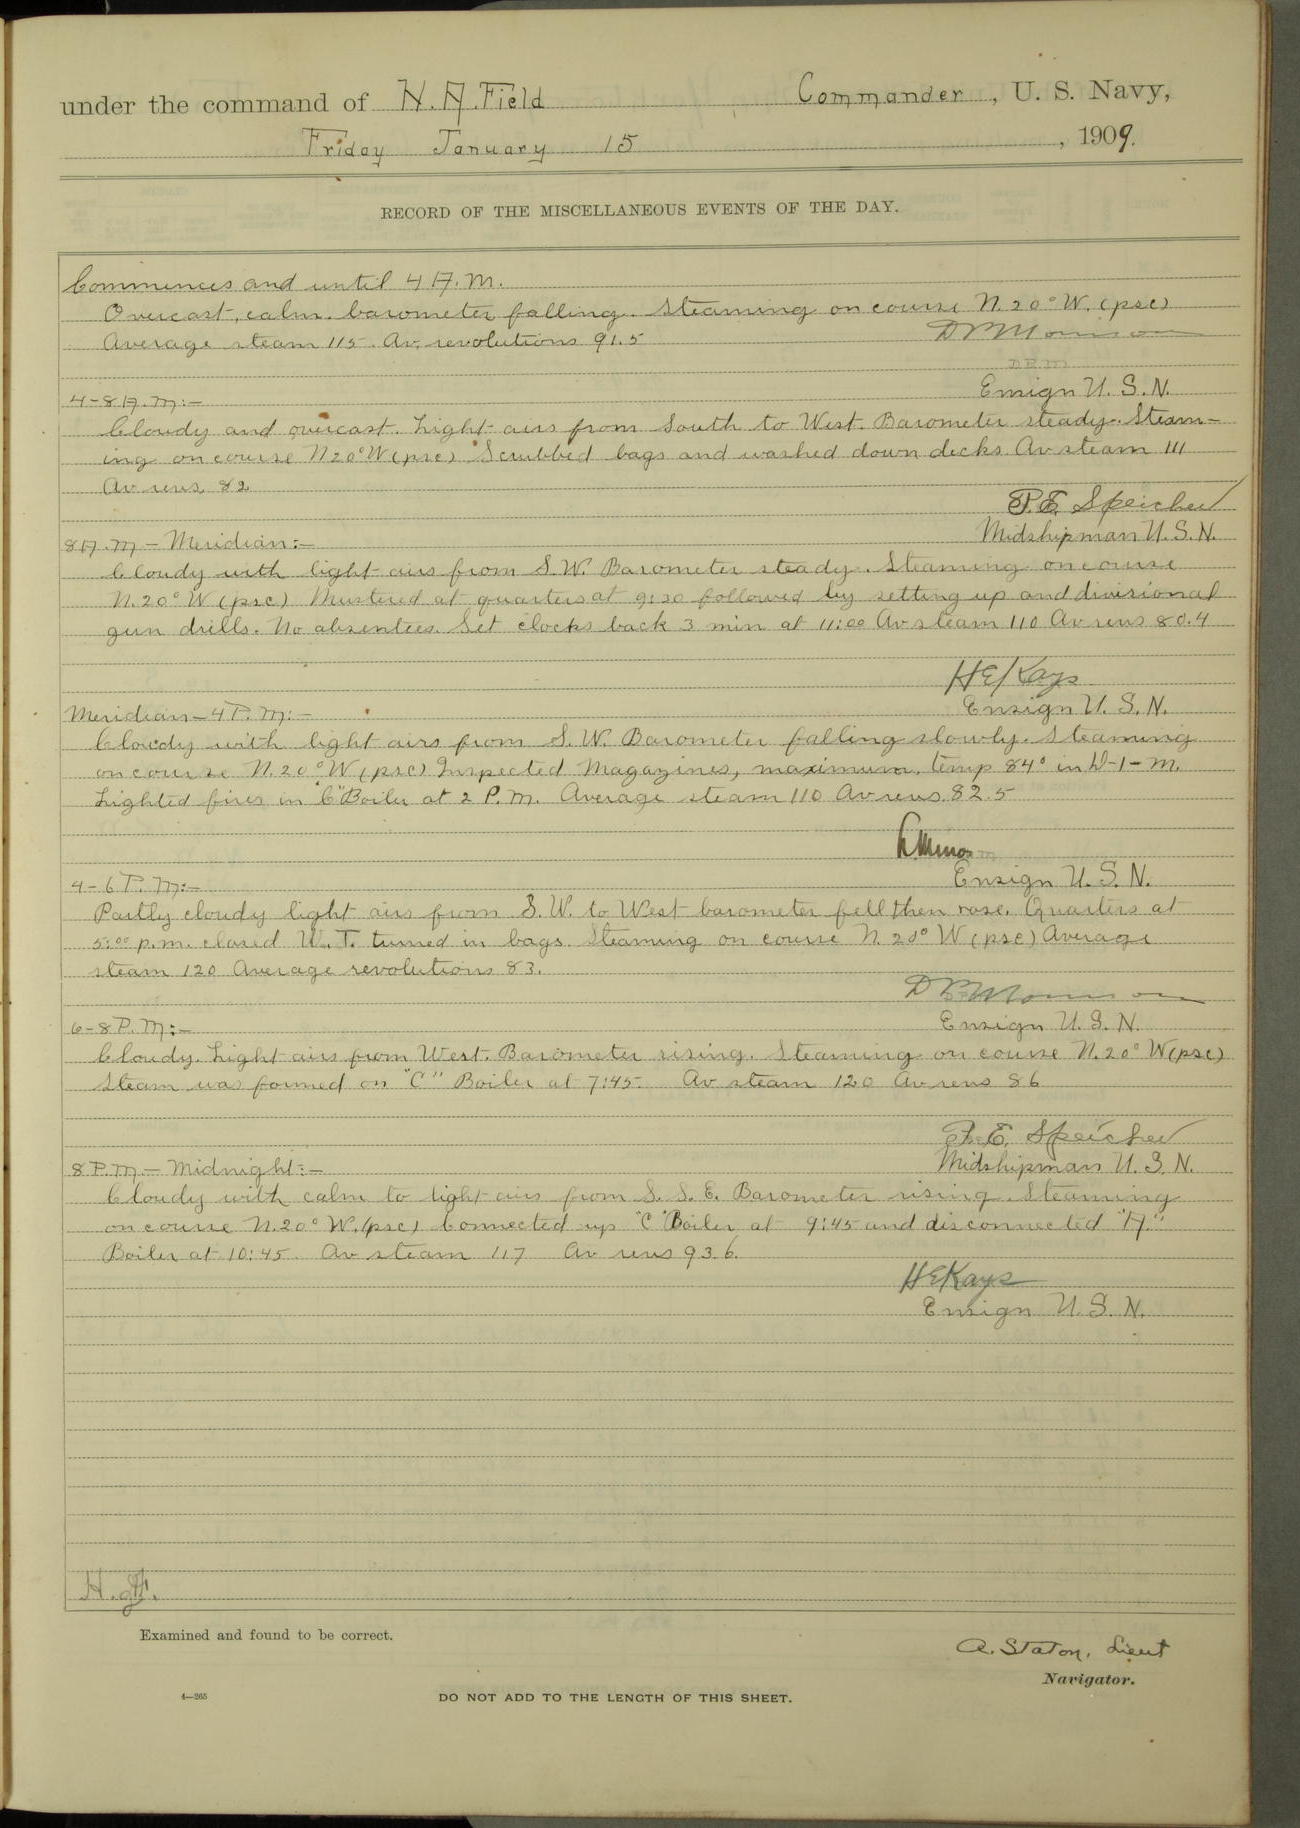 under the command of H. A. Field Commander, U. S. Navy,
Friday January 15, 1909.
RECORD OF THE MISCELLANEOUS EVENTS OF THE DAY.
Commences and until 4 A.M.
Overcast, calm. barometer falling. Steaming on course N. 20° W. (psc)
Average steam 115. Av. revolutions 91.5
D P Morrison
D.P.M.
Ensign U. S. N.
4-8 A.M:-
Cloudy and overcast. Light airs from South to West. Barometer steady. Steam-
ing on course N 20° W (psc) Scrubbed bags and washed down decks. Av steam 111
Av revs 82
P. E. Speicher
Midshipman U. S. N.
8 A.M - Meridian:-
Cloudy with light airs from S.W. Barometer steady. Steaming on course
N. 20° W (psc) Mustered at quarters at 9:30 followed by setting up and divisional
gun drills. No absentees. Set clocks back 3 min at 11:00 Av steam 110 Av revs 80.4
H E Kays
Ensign U. S. N.
Meridian - 4 P.M:-
Cloudy with light airs from S. W. Barometer falling slowly. Steaming
on course N. 20° W (psc) Inspected Magazines, maximum. temp 84° in D-1-M.
Lighted fires in "C" Boiler at 2 P.M. Average steam 110 Av revs. 82.5
L. Minor
Ensign U. S. N.
4-6 P.M:-
Partly cloudy light airs from S. W. to West barometer fell then rose. Quarters at
5:00 p.m. closed W. T. turned in bags. Steaming on course N. 20° W (psc) Average
steam 120 Average revolutions 83.
D P Morrison
Ensign U. S. N.
6-8 P.M:-
Cloudy. Light airs from West. Barometer rising. Steaming on course N. 20° W (psc)
Steam was formed on "C" Boiler at 7:45. Av steam 120 Av revs 86
P. E. Speicher
Midshipman U. S. N.
8 P.M - Midnight:-
Cloudy with calm to light airs from S. S. E. Barometer rising. Steaming
on course N. 20° W. (psc) Connected up "C" Boiler at 9:45 and disconnected "A"
Boiler at 10:45. Av steam 117 Av revs 93.6.
H E Kays
Ensign U. S. N.
Examined and found to be correct.
A. Staton, Lieut
Navigator.
4—265
DO NOT ADD TO THE LENGTH OF THIS SHEET.